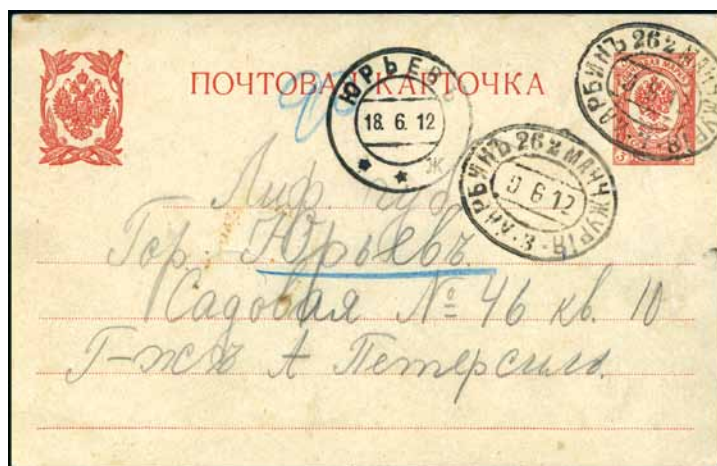 ПОЧТОВАЯ КАРТОЧКА
ЮРЬЕВЪ
18.6.12
ХАРБИНЪ 26 МАНЧЖУРІЯ
9 6 12
Лиф. губ.
Гор. Юрьевъ.
Садовая № 46 кв. 10
Г-жѣ А Петерсилл.